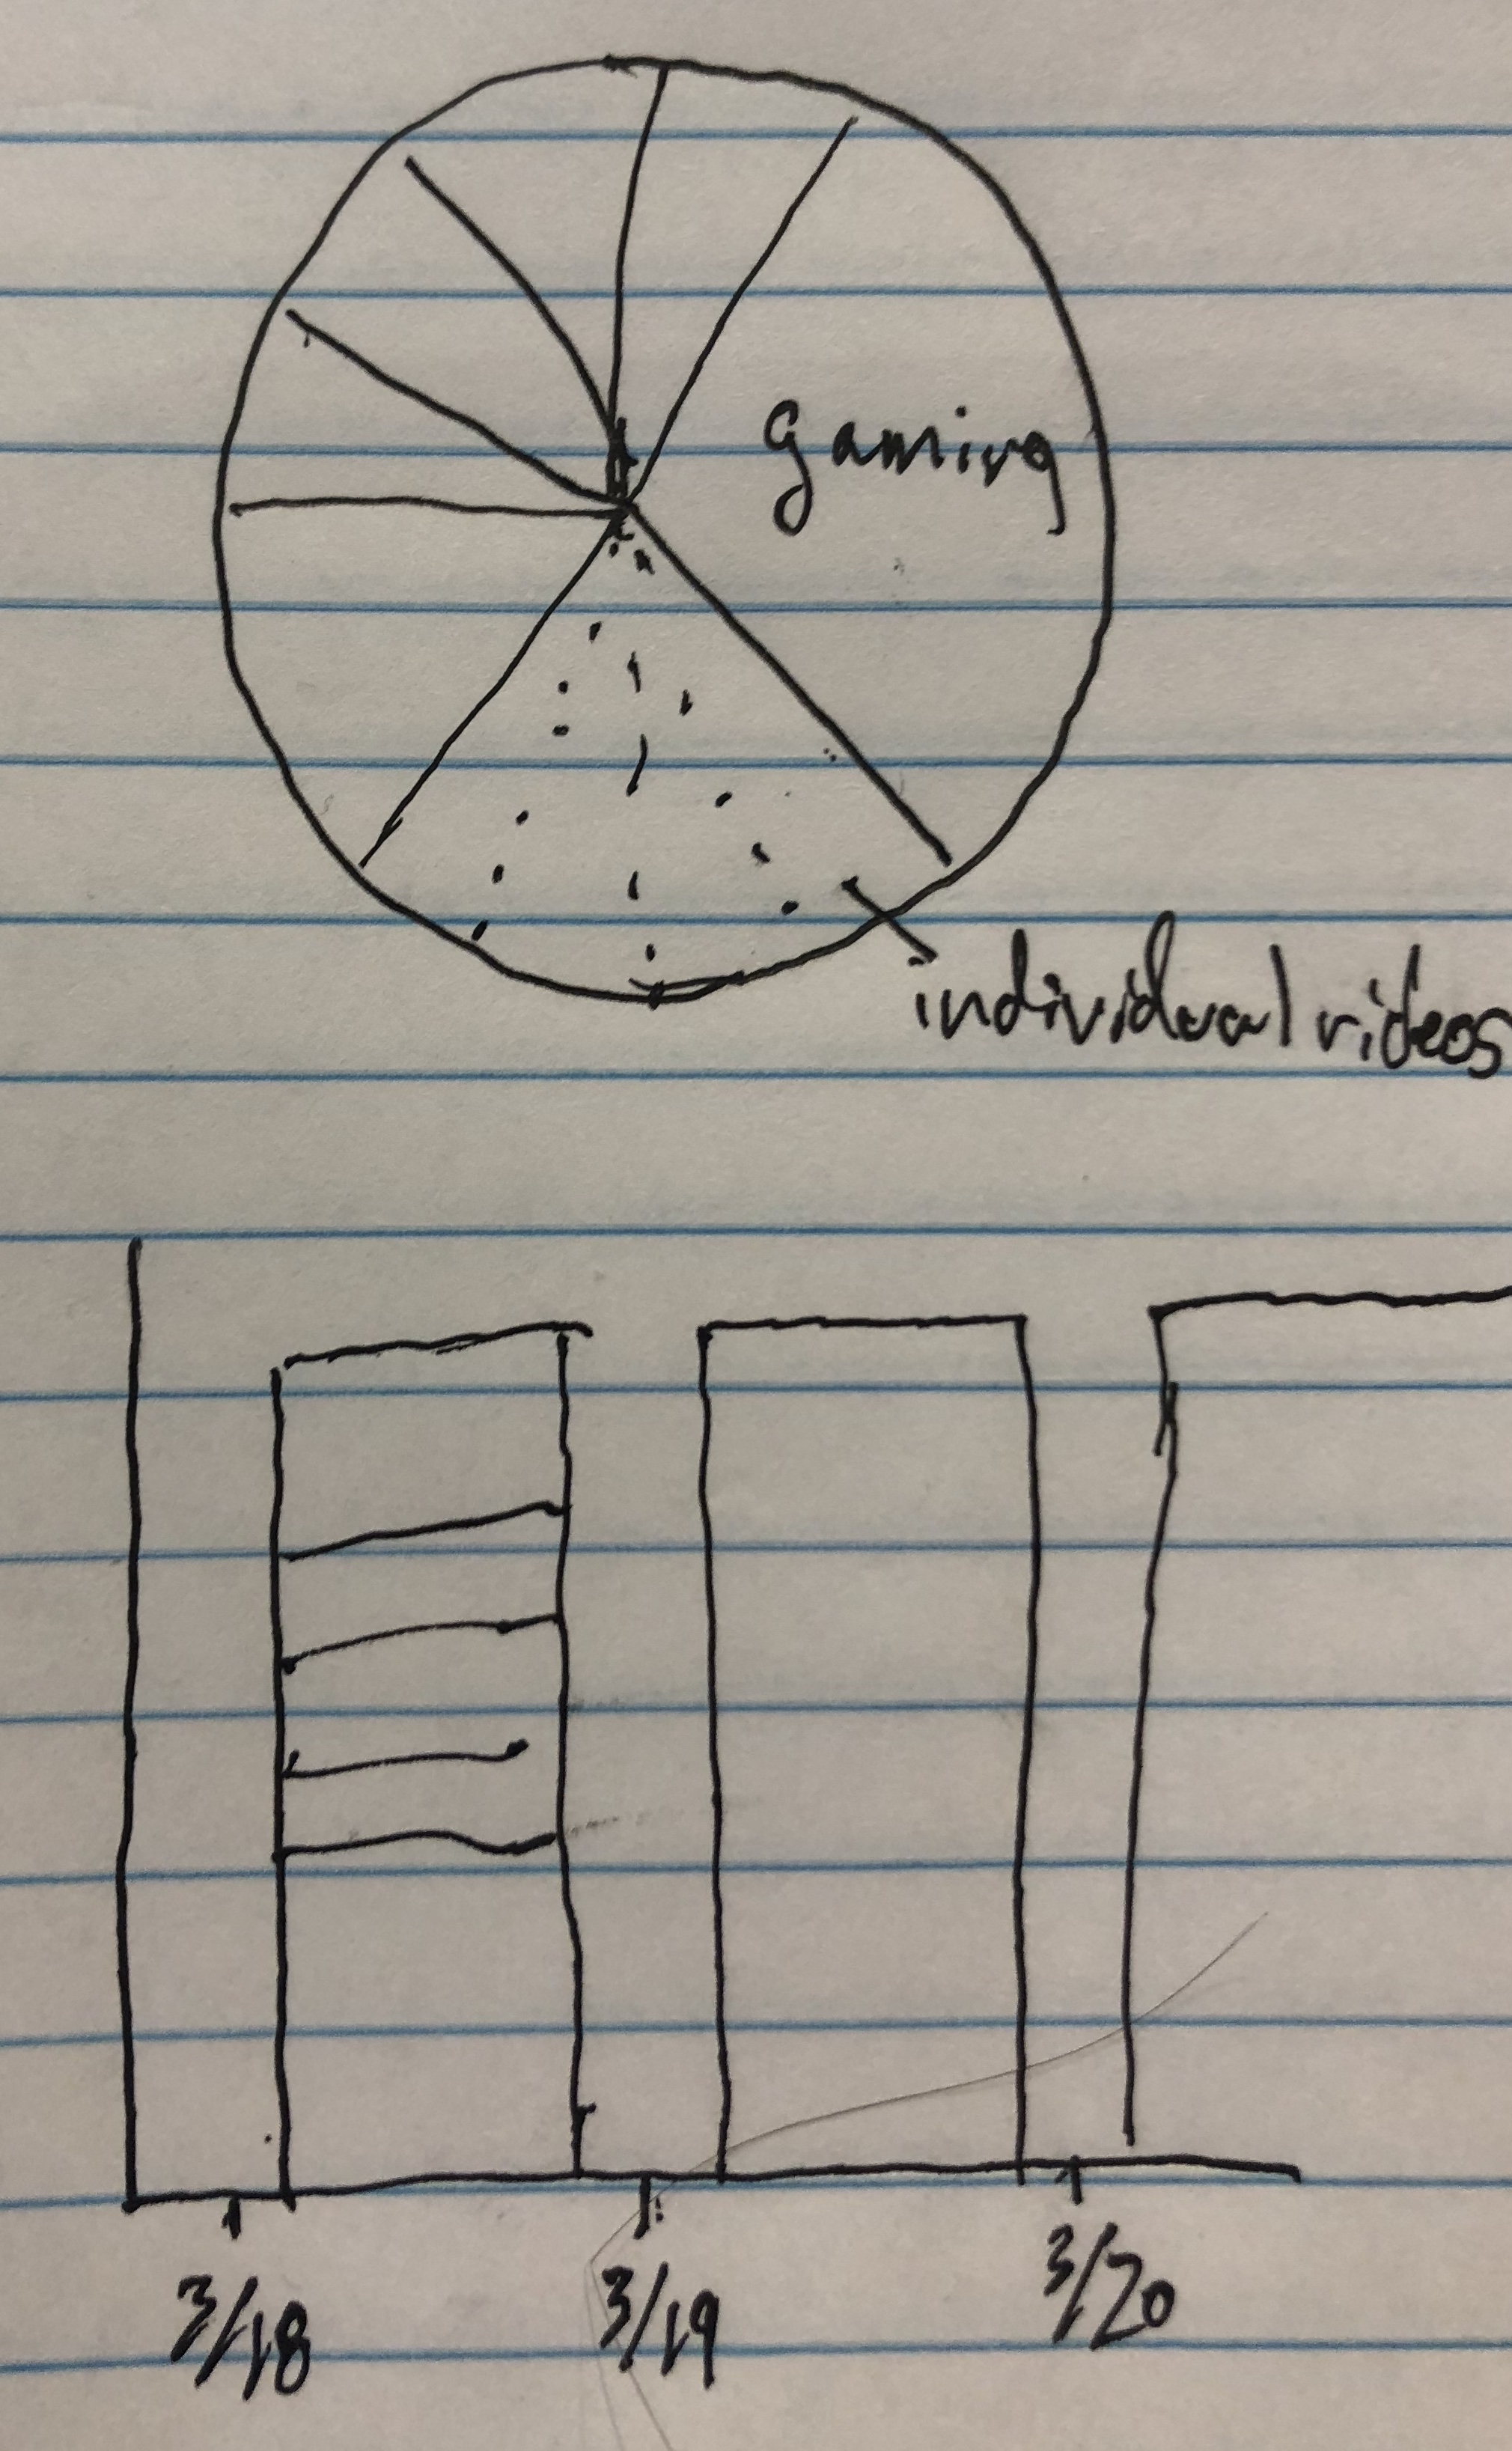 gaming
individual videos
3/18 3/19 3/20